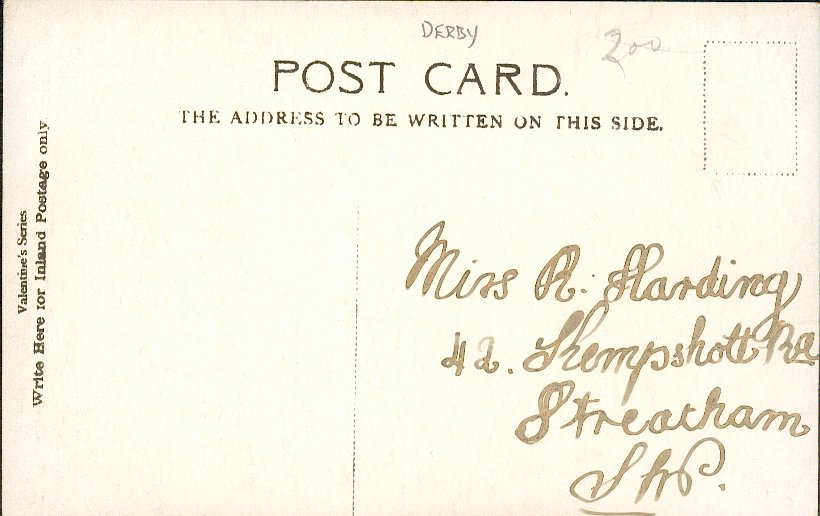 DERBY
200
POST CARD.
THE ADDRESS TO BE WRITTEN ON THIS SIDE.
Valentine's Series
Write Here for Inland Postage only
Miss R. Harding
42. Kempshott Rd
Streatham
S.W.